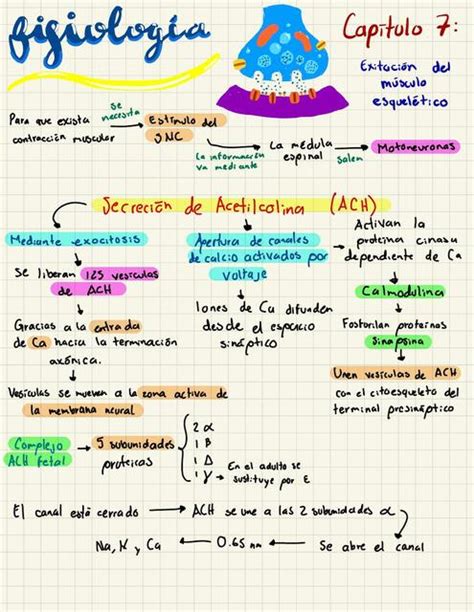 fisiología
Capítulo 7:
Exitación del
músculo
esquelético
Para que exista
contracción muscular
se
necesita
Estímulo del
SNC
La información
va mediante
La médula
espinal
salen
Motoneuronas
Secreción de Acetilcolina (ACH)
Mediante exocitosis
Se liberan 125 vesículas
de ACH
Gracias a la entrada
de Ca hacia la terminación
axónica.
Vesículas se mueven a la zona activa de
la membrana neural
Apertura de canales
de calcio activados por
voltaje
Iones de Ca difunden
desde el espacio
sináptico
Activan la
proteína cinasa
dependiente de Ca
Calmodulina
Fosforilan proteínas
sinapsina
Unen vesículas de ACH
con el citoesqueleto del
terminal presináptico
Complejo
ACH fetal
5 subunidades
proteicas
2 α
1 β
1 Δ
1 γ
En el adulto se
sustituye por E
El canal está cerrado
ACH se une a las 2 subunidades α
Se abre el canal
0.65 nm
Na, K y Ca